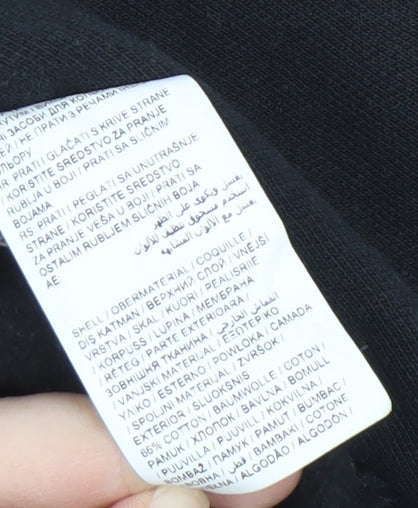 ЗАСОБИ ДЛЯ
НЕ ПРАТИ З РЕЧАМИ
КОЛЬОРУ
HR. PRATI / GLAČATI S KRIVE STRANE
/ KORISTITE SREDSTVO ZA PRANJE
RUBLJA U BOJI / PRATI SA SLIČNIM
BOJAMA
RS. PRATI / PEGLATI SA UNUTRAŠNJE
STRANE / KORISTITE SREDSTVO
ZA PRANJE VEŠA U BOJI / PRATI SA
OSTALIM RUBLJEM SLIČNIH BOJA
AE
يغسل ويكوى على الظهر
إستخدم مسحوق تنظيف للألوان
يغسل مع الألوان المشابهة
SHELL / OBERMATERIAL / COQUILLE /
DIŞ KATMAN / ВЕРХНИЙ СЛОЙ / VNĚJŠÍ
VRSTVA / SKAL / KUORI / PEALISRIIE
/ KORPUSS / LUPINA / МЕМБРАНА
/ RÉTEG / PARTE EXTERIORA /
ЗОВНІШНЯ ТКАНИНА / القماش الخارجي
/ VANJSKI MATERIJAL / ΕΞΩΤΕΡΙΚΟ
ΥΛΙΚΟ / ESTERNO / POWŁOKA / CAMADA
/ SPOLJNI MATERIJAL / ZVRŠOK /
EXTERIOR / SLUOKSNIS
66% COTTON / BAUMWOLLE / COTON /
PAMUK / ХЛОПОК / BAVLNA / BOMULL
/ PUUVILLA / PUUVILL / KOKVILNA /
BOMBAŽ / ПАМУК / PAMUT / BUMBAC /
БАВОВНА / قطن / ΒΑΜΒΑΚΙ / COTONE
/ ALGODÃO / ALGODÓN /